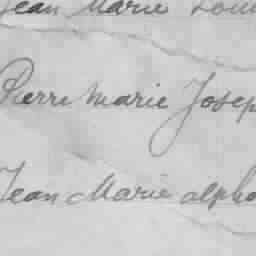 Jean Marie Loui
Pierre Marie Josep
Jean Marie alpho